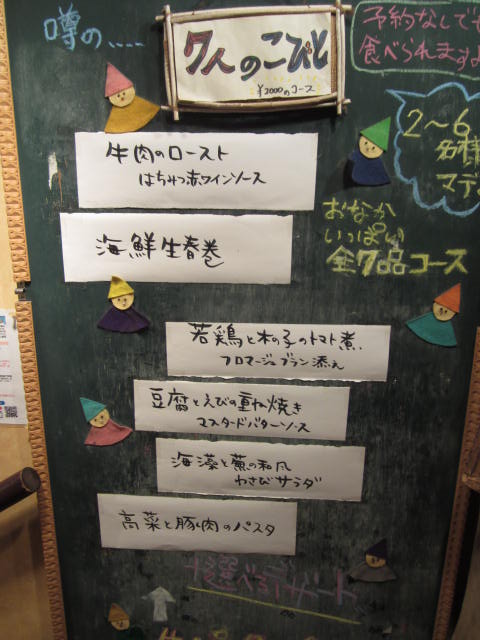 噂の....
7人のこびと
¥2000のコース
予約なしでも
食べられますよ
2〜6
名様
マデ
牛肉のロースト
はちみつ赤ワインソース
海鮮生春巻
おなか
いっぱい
全7品コース
若鶏と木の子のトマト煮
フロマージュブラン添え
豆腐とえびの重ね焼き
マスタードバターソース
海藻と蕪の和風
わさびサラダ
高菜と豚肉のパスタ
+選べるデザート